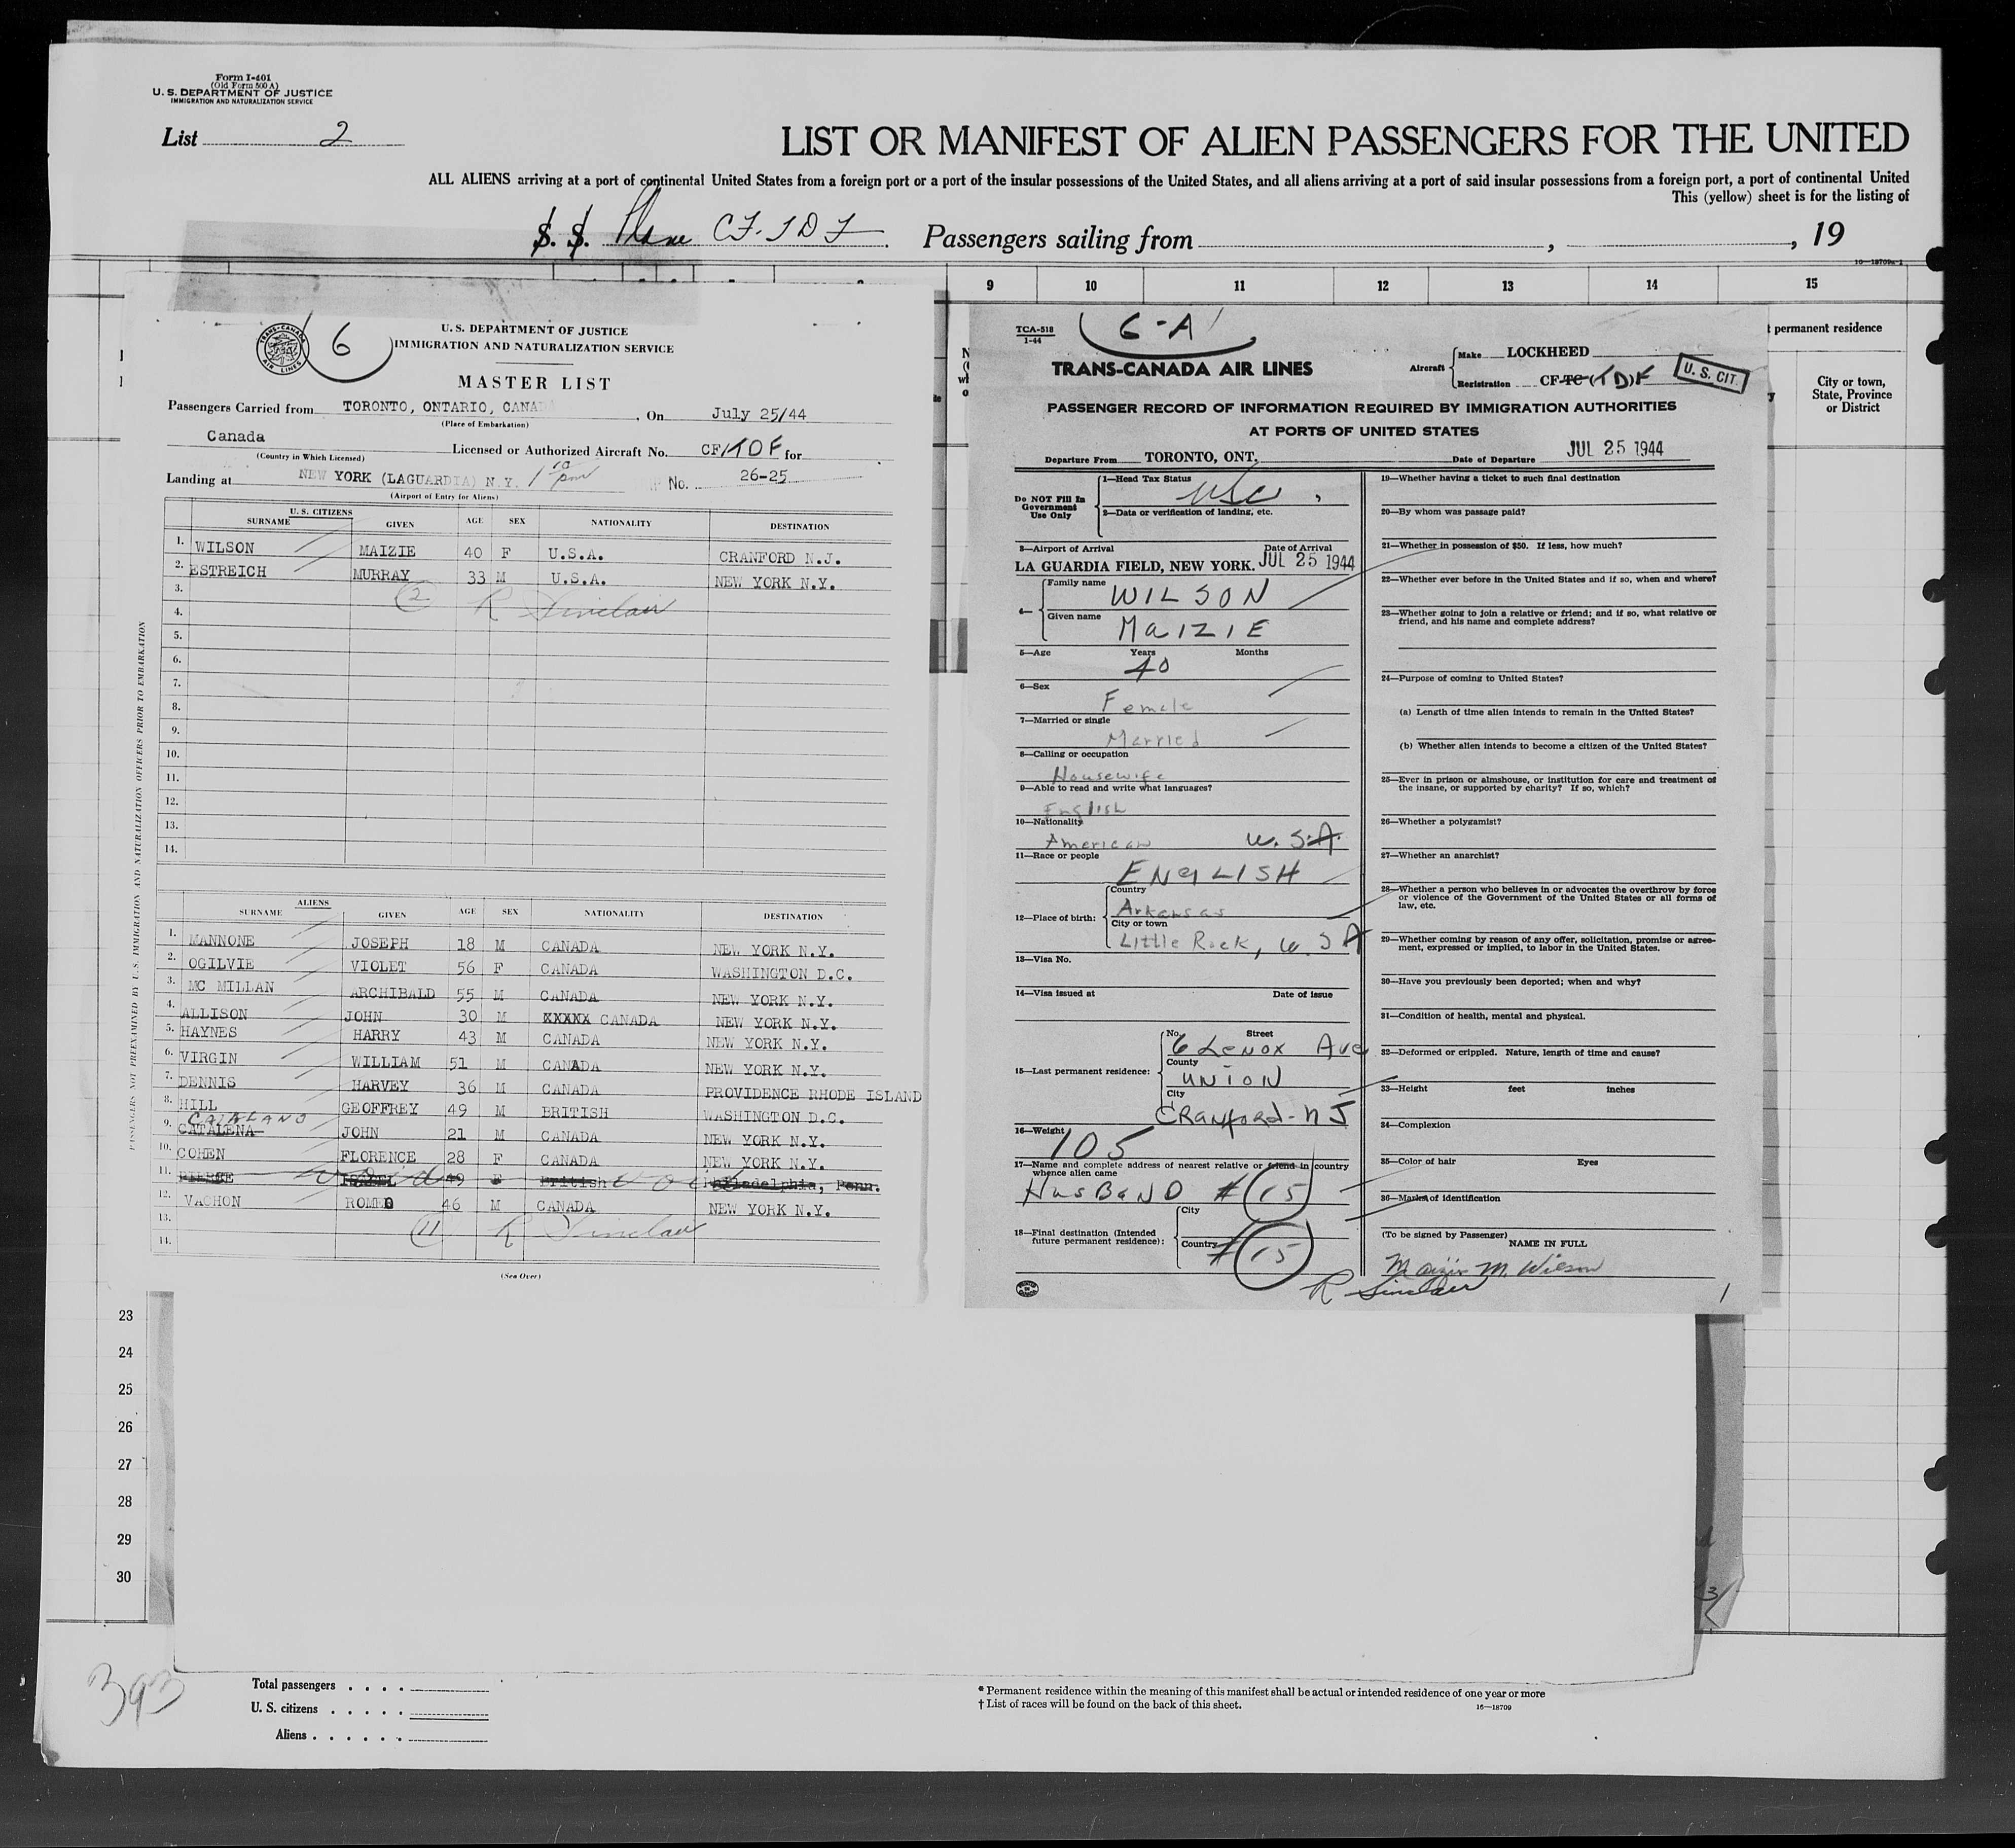 Form I-401
(Old Form 500 A)
U. S. DEPARTMENT OF JUSTICE
IMMIGRATION AND NATURALIZATION SERVICE
List 2
LIST OR MANIFEST OF ALIEN PASSENGERS FOR THE UNITED
ALL ALIENS arriving at a port of continental United States from a foreign port or a port of the insular possessions of the United States, and all aliens arriving at a port of said insular possessions from a foreign port, a port of continental United
This (yellow) sheet is for the listing of
S. S. Plane CF-TDF. Passengers sailing from , , 19
16—18709a-1
9 10 11 12 13 14 15
permanent residence
City or town,
State, Province
or District
TRANS-CANADA AIR LINES
6
U. S. DEPARTMENT OF JUSTICE
IMMIGRATION AND NATURALIZATION SERVICE
MASTER LIST
Passengers Carried from TORONTO, ONTARIO, CANA , On July 25/44
(Place of Embarkation)
Canada Licensed or Authorized Aircraft No. CF TDF for
(Country in Which Licensed)
Landing at NEW YORK (LAGUARDIA) N.Y. 1 10 pm No. 26-25
(Airport of Entry for Aliens)
U. S. CITIZENS
SURNAME GIVEN AGE SEX NATIONALITY DESTINATION
1. WILSON MAIZIE 40 F U.S.A. CRANFORD N.J.
2. ESTREICH MURRAY 33 M U.S.A. NEW YORK N.Y.
3. 2 R Sinclair
4.
5.
6.
7.
8.
9.
10.
11.
12.
13.
14.
PASSENGERS NOT PREEXAMINED BY U.S. IMMIGRATION AND NATURALIZATION OFFICERS PRIOR TO EMBARKATION
ALIENS
SURNAME GIVEN AGE SEX NATIONALITY DESTINATION
1. MANNONE JOSEPH 18 M CANADA NEW YORK N.Y.
2. OGILVIE VIOLET 56 F CANADA WASHINGTON D.C.
3. MC MILLAN ARCHIBALD 55 M CANADA NEW YORK N.Y.
4. ALLISON JOHN 30 M XXXXX CANADA NEW YORK N.Y.
5. HAYNES HARRY 43 M CANADA NEW YORK N.Y.
6. VIRGIN WILLIAM 51 M CANADA NEW YORK N.Y.
7. DENNIS HARVEY 36 M CANADA PROVIDENCE RHODE ISLAND
8. HILL GEOFFREY 49 M BRITISH WASHINGTON D.C.
CATALANO
9. CATALENA JOHN 21 M CANADA NEW YORK N.Y.
10. COHEN FLORENCE 28 F CANADA NEW YORK N.Y.
11. PIERCE 49 F British Philadelphia, Penn.
12. VACHON ROMEO 46 M CANADA NEW YORK N.Y.
13. 11 R Sinclair
14.
(See Over)
TCA-518
1-44
6-A
TRANS-CANADA AIR LINES
Aircraft Make LOCKHEED
Registration CF-TC (TD)F
U. S. CIT.
PASSENGER RECORD OF INFORMATION REQUIRED BY IMMIGRATION AUTHORITIES
AT PORTS OF UNITED STATES
Departure From TORONTO, ONT. Date of Departure JUL 25 1944
Do NOT Fill In
Government
Use Only
1—Head Tax Status
USC
2—Data or verification of landing, etc.
3—Airport of Arrival Date of Arrival
LA GUARDIA FIELD, NEW YORK. JUL 25 1944
4— Family name
WILSON
Given name
MaIZIE
5—Age Years Months
40
6—Sex
Female
7—Married or single
Married
8—Calling or occupation
Housewife
9—Able to read and write what languages?
English
10—Nationality
American U.S.A.
11—Race or people
ENGLISH
12—Place of birth: Country
Arkansas
City or town
Little Rock, U.S A
13—Visa No.
14—Visa issued at Date of issue
15—Last permanent residence: No. Street
6 Lenox Ave
County
UNION
City
CRanford-NJ
16—Weight
105
17—Name and complete address of nearest relative or friend in country
whence alien came
HusBaND # 15
18—Final destination (Intended
future permanent residence): City
Country
# 15
19—Whether having a ticket to such final destination
20—By whom was passage paid?
21—Whether in possession of $50. If less, how much?
22—Whether ever before in the United States and if so, when and where?
23—Whether going to join a relative or friend; and if so, what relative or
friend, and his name and complete address?
24—Purpose of coming to United States?
(a) Length of time alien intends to remain in the United States?
(b) Whether alien intends to become a citizen of the United States?
25—Ever in prison or almshouse, or institution for care and treatment of
the insane, or supported by charity? If so, which?
26—Whether a polygamist?
27—Whether an anarchist?
28—Whether a person who believes in or advocates the overthrow by force
or violence of the Government of the United States or all forms of
law, etc.
29—Whether coming by reason of any offer, solicitation, promise or agree-
ment, expressed or implied, to labor in the United States.
30—Have you previously been deported; when and why?
31—Condition of health, mental and physical.
32—Deformed or crippled. Nature, length of time and cause?
33—Height feet inches
34—Complexion
35—Color of hair Eyes
36—Marks of identification
(To be signed by Passenger)
NAME IN FULL
Maizie M. Wilson
R Sinclair
1
23
24
25
26
27
28
29
30
393
Total passengers
U. S. citizens
Aliens
* Permanent residence within the meaning of this manifest shall be actual or intended residence of one year or more
† List of races will be found on the back of this sheet.
16—18709